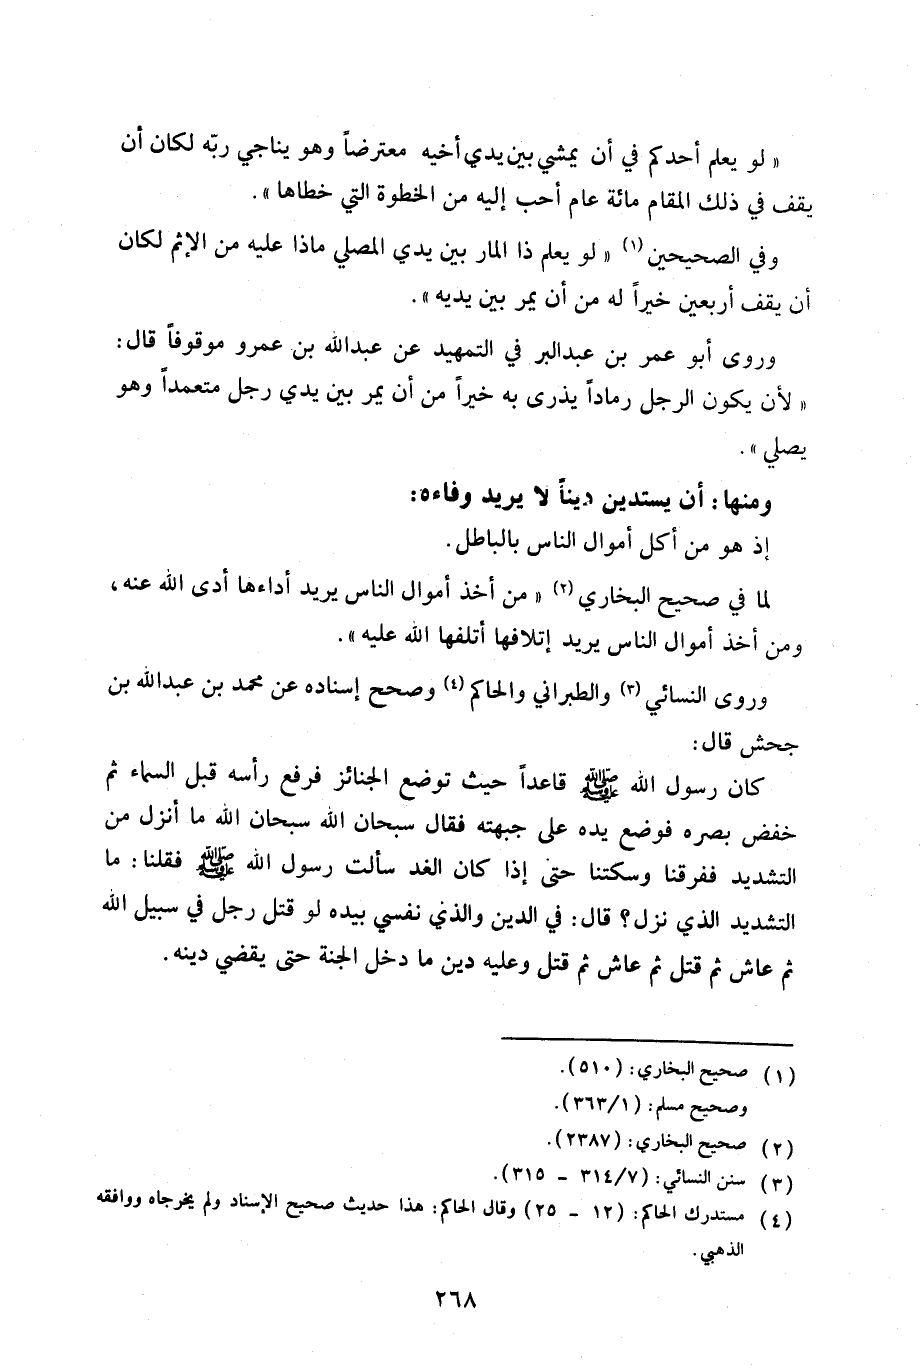 « لو يعلم أحدكم في أن يمشي بين يدي أخيه معترضاً وهو يناجي ربّه لكان أن
يقف في ذلك المقام مائة عام أحب إليه من الخطوة التي خطاها » .
وفي الصحيحين (١) « لو يعلم ذا المار بين يدي المصلي ماذا عليه من الإثم لكان
أن يقف أربعين خيراً له من أن يمر بين يديه » .
وروى أبو عمر بن عبدالبر في التمهيد عن عبدالله بن عمرو موقوفاً قال :
« لأن يكون الرجل رماداً يذرى به خيراً من أن يمر بين يدي رجل متعمداً وهو
يصلي » .
ومنها : أن يستدين ديناً لا يريد وفاءه :
إذ هو من أكل أموال الناس بالباطل .
لما في صحيح البخاري (٢) « من أخذ أموال الناس يريد أداءها أدى الله عنه ،
ومن أخذ أموال الناس يريد إتلافها أتلفها الله عليه » .
وروى النسائي (٣) والطبراني والحاكم (٤) وصحح إسناده عن محمد بن عبدالله بن
جحش قال :
كان رسول الله ﷺ قاعداً حيث توضع الجنائز فرفع رأسه قبل السماء ثم
خفض بصره فوضع يده على جبهته فقال سبحان الله سبحان الله ما أنزل من
التشديد ففرقنا وسكتنا حتى إذا كان الغد سألت رسول الله ﷺ فقلنا : ما
التشديد الذي نزل ؟ قال : في الدين والذي نفسي بيده لو قتل رجل في سبيل الله
ثم عاش ثم قتل ثم عاش ثم قتل وعليه دين ما دخل الجنة حتى يقضي دينه .
(١) صحيح البخاري : (٥١٠) .
وصحيح مسلم : (٣٦٣/١) .
(٢) صحيح البخاري : (٢٣٨٧) .
(٣) سنن النسائي : (٣١٤/٧ - ٣١٥) .
(٤) مستدرك الحاكم : (١٢ - ٢٥) وقال الحاكم : هذا حديث صحيح الإسناد ولم يخرجاه ووافقه
الذهبي .
٢٦٨